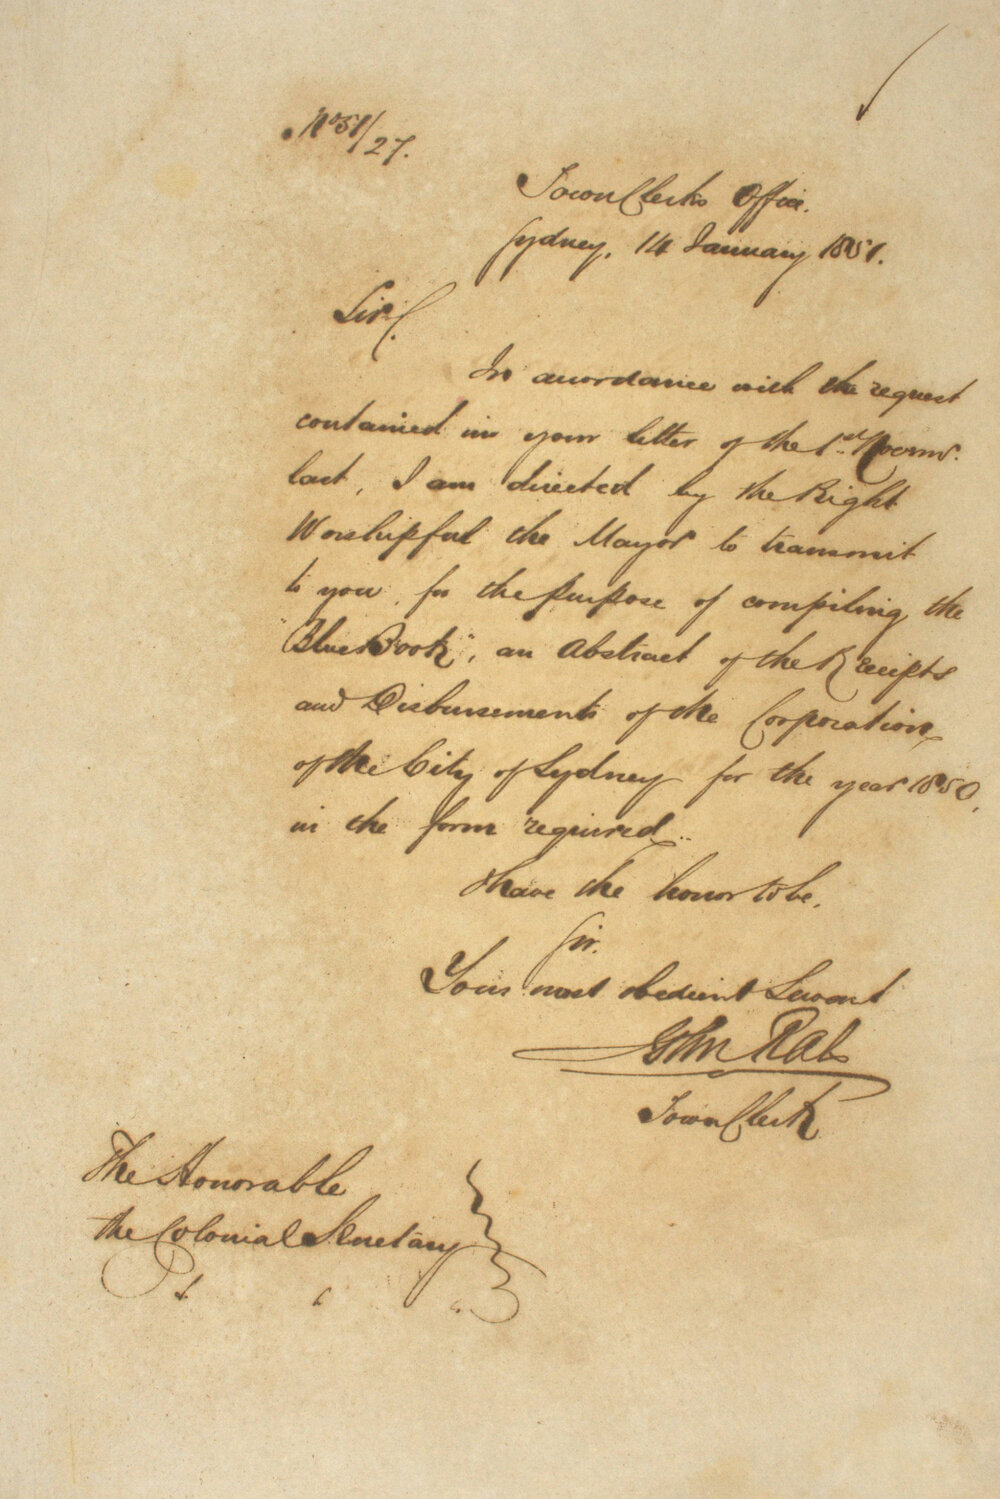 No 51/27.
Town Clerk's Office.
Sydney, 14 January 1851.
Sir,
In accordance with the request
contained in your letter of the 1st Novr.
last, I am directed by the Right
Worshipful the Mayor to transmit
to you, for the purpose of compiling the
"Blue Book", an Abstract of the Receipts
and Disbursements of the Corporation
of the City of Sydney for the year 1850,
in the form required.
I have the honor to be,
Sir.
Your most obedient Servant
John Rae
Town Clerk
The Honorable
the Colonial Secretary